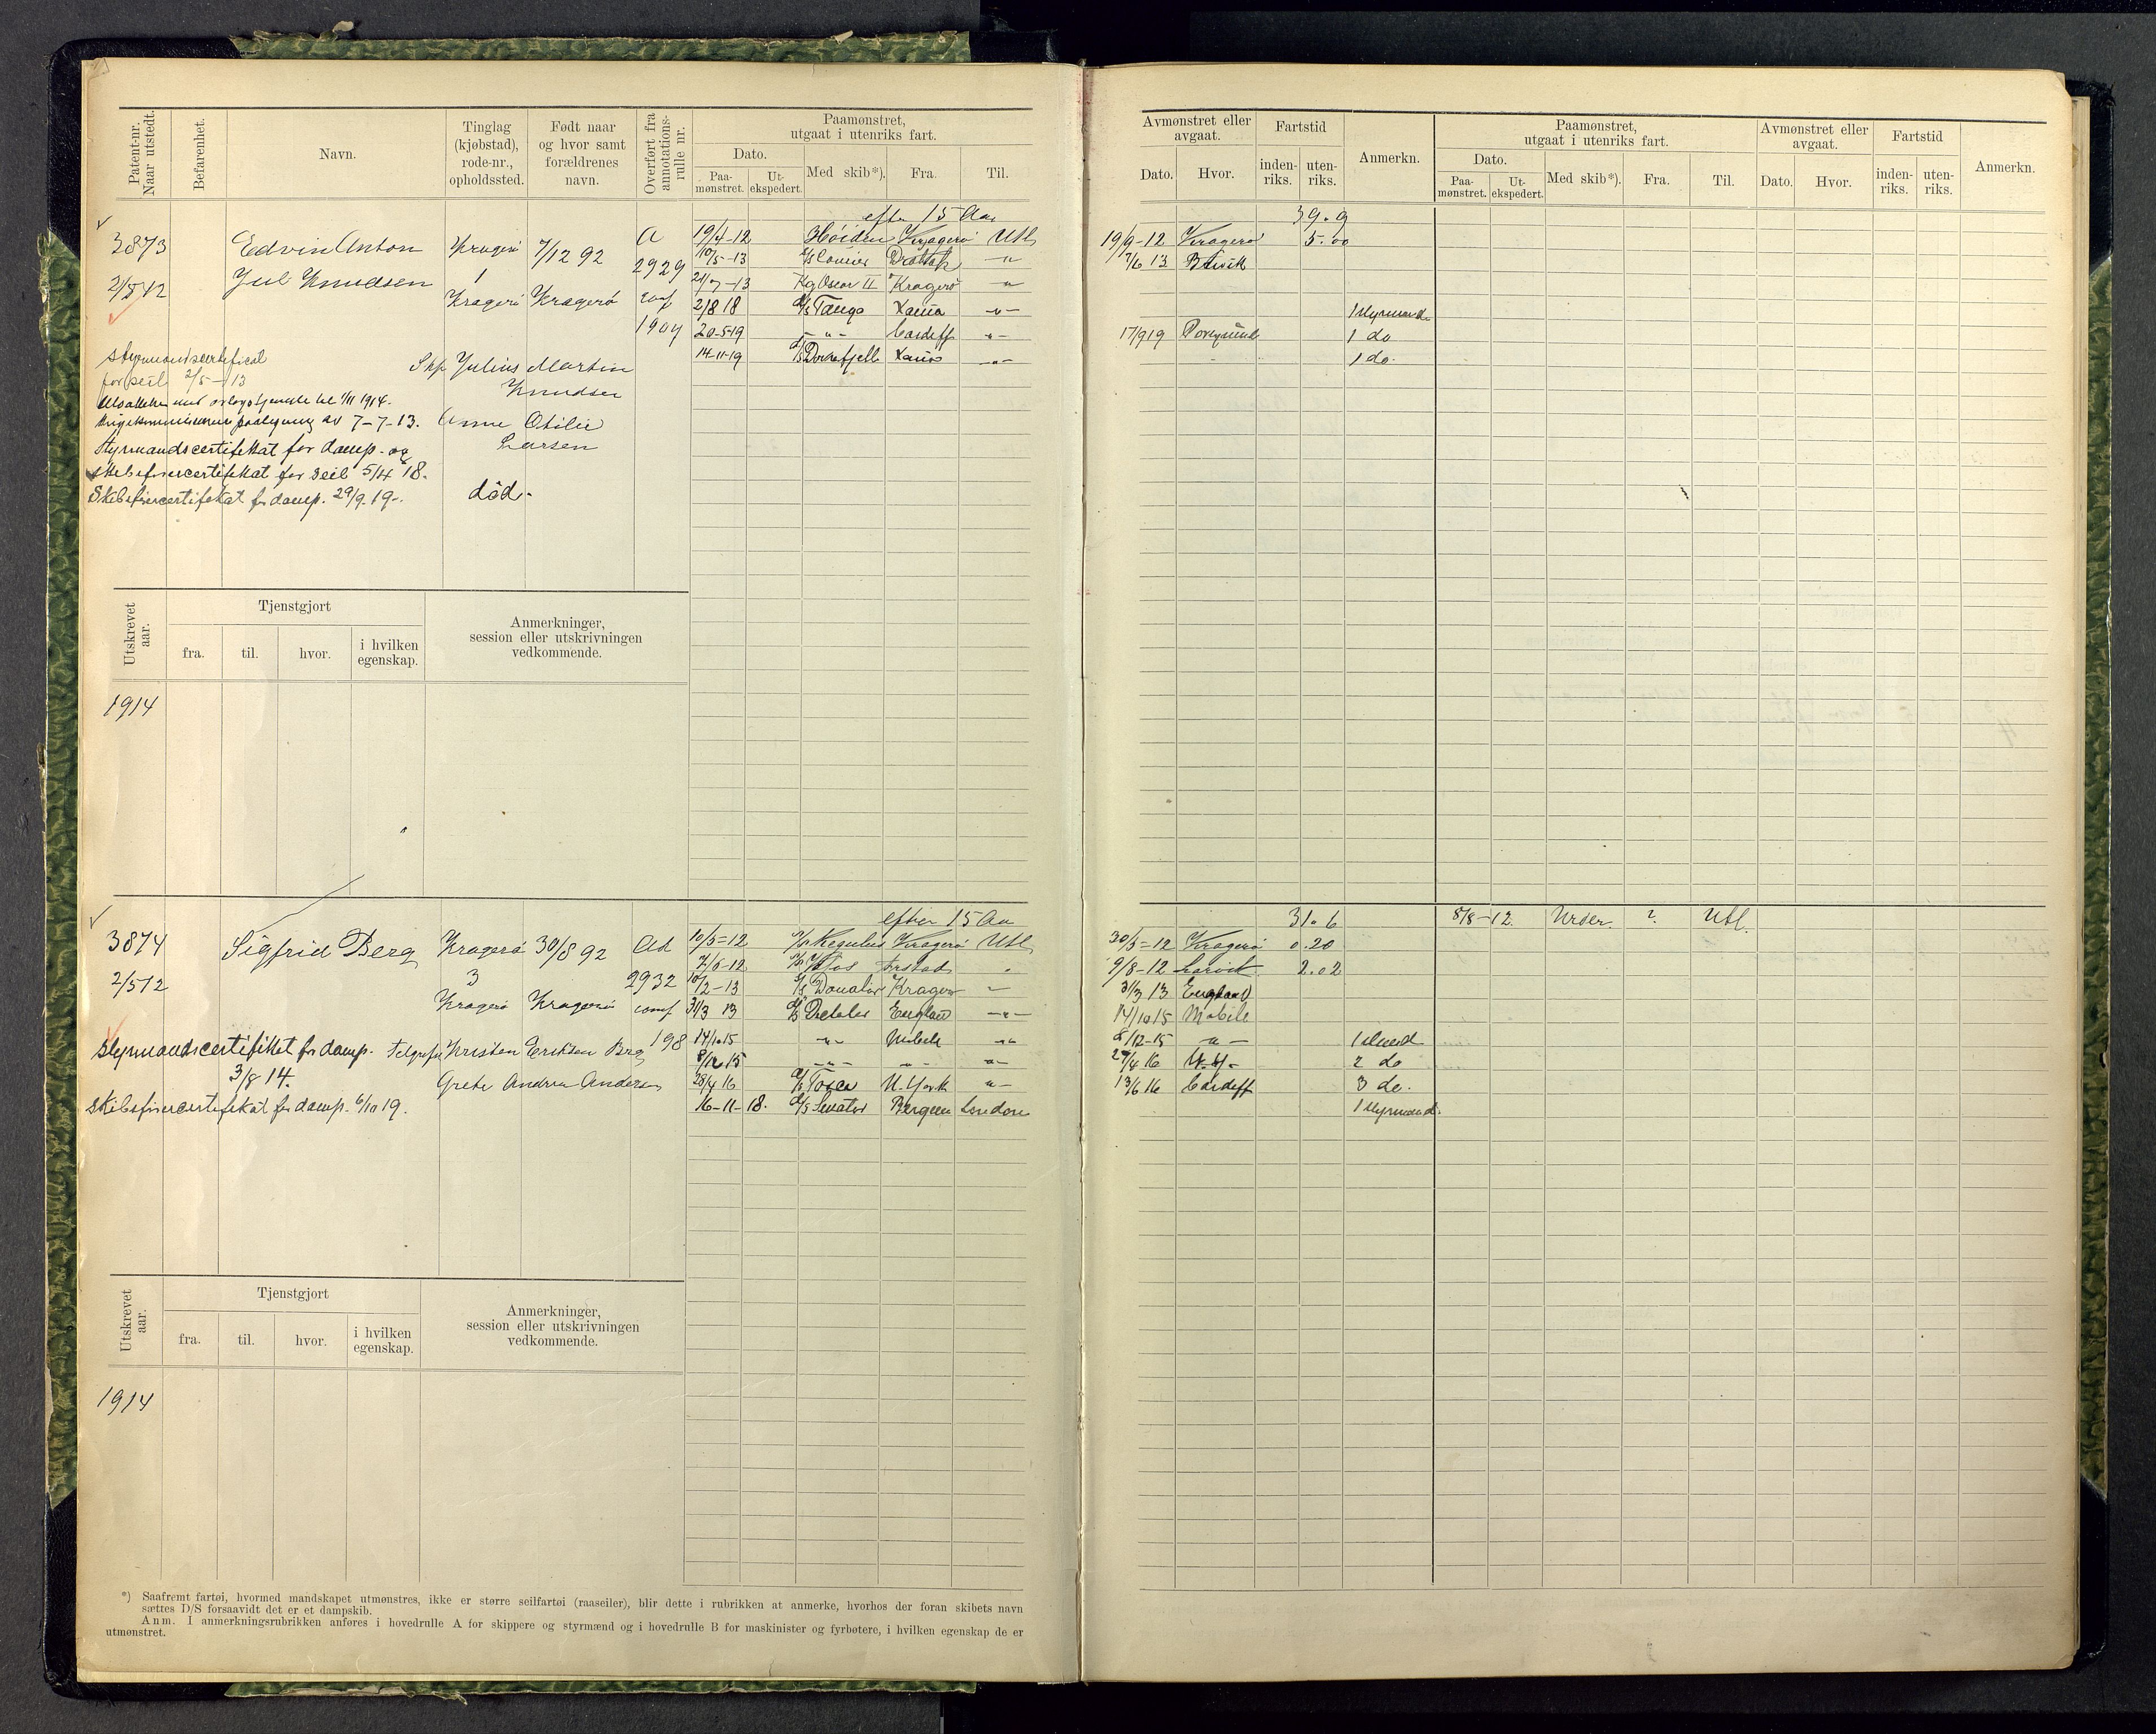 Patent-nr. Naar utstedt.
Befarenhet.
Navn.
Tinglag (kjøbstad), rode-nr., opholdssted.
Født naar og hvor samt forældrenes navn.
Overført fra annotations-rulle nr.
Paamønstret, utgaat i utenriks fart.
Dato.
Paa-mønstret.
Ut-ekspedert.
Med skib*).
Fra.
Til.
Avmønstret eller avgaat.
Dato.
Hvor.
Fartstid
inden-riks.
uten-riks.
Anmerkn.
Paamønstret, utgaat i utenriks fart.
Dato.
Paa-mønstret.
Ut-ekspedert.
Med skib*).
Fra.
Til.
Avmønstret eller avgaat.
Dato.
Hvor.
Fartstid
inden-riks.
uten-riks.
Anmerkn.
efter 15 Aar 39.9
3873 Edvin Anton Kragerø 7/12 92 A 19/4-12 Kragerø Utl 19/9-12 Kragerø 5.00
Jul Knudsen 1 2929 10/5-13 -"- 7/6 13
2/5 12 21/7-13 Kg Oscar II Kragerø -"-
Kragerø Kragerø 2/8 18 D/S Tango -"- 1 styrmand
1909 20-5-19 -"- Cardiff -"- 17/9 19 1 do
14-11-19 D/S Dovrefjell -"- 1 do.
Styrmandscertificat Skp. Julius Martin
for seil 2/5-13 Knudsen
til 1/11 1914.
av 7-7-13. Anne Otilie
Styrmandscertifikat for damp- og Larsen
skibsførercertifikat for seil 5/4 18.
Skibsførercertifikat f. damp. 29/9-19-. død.
Utskrevet aar.
Tjenstgjort
fra.
til.
hvor.
i hvilken egenskap.
Anmerkninger, session eller utskrivningen vedkommende.
1914
efter 15 Aar 31.6 8/8-12 Urder. ?. Utl.
3874 Sigfrid Berg Kragerø 30/8 92 Ad 10/5=12 Regulus Kragerø Utl 30/5=12 Kragerø 0.20
3 2932 7/6-12 9/8-12 Larvik 2.02
2/5 12 10/2-13 Kragerø -"- 31/3 13 England
Kragerø Kragerø 31/3 13 England -"- 14/10 15 Mobile
Styrmandscertifikat for damp. Kristen Eriksen Berg 198 14/10 15 -"- Mobile -"- 8/12-15 -"-
3/8 14. 8/12 15 -"- -"- -"- 2 do
Grete Andrea Andersen 28/4 16 D/S Tosca N. York -"- 13/6 16 Cardiff 3 do.
Skibsførercertifikat for damp. 6/10 19. 16-11-18. D/S Senator Bergen London 1 styrmand.
Utskrevet aar.
Tjenstgjort
fra.
til.
hvor.
i hvilken egenskap.
Anmerkninger, session eller utskrivningen vedkommende.
1914
*) Saafremt fartøi, hvormed mandskapet utmønstres, ikke er større seilfartøi (raaseiler), blir dette i rubrikken at anmerke, hvorhos der foran skibets navn
sættes D/S forsaavidt det er et dampskib.
Anm. I anmerkningsrubrikken anføres i hovedrulle A for skippere og styrmænd og i hovedrulle B for maskinister og fyrbøtere, i hvilken egenskap de er
utmønstret.